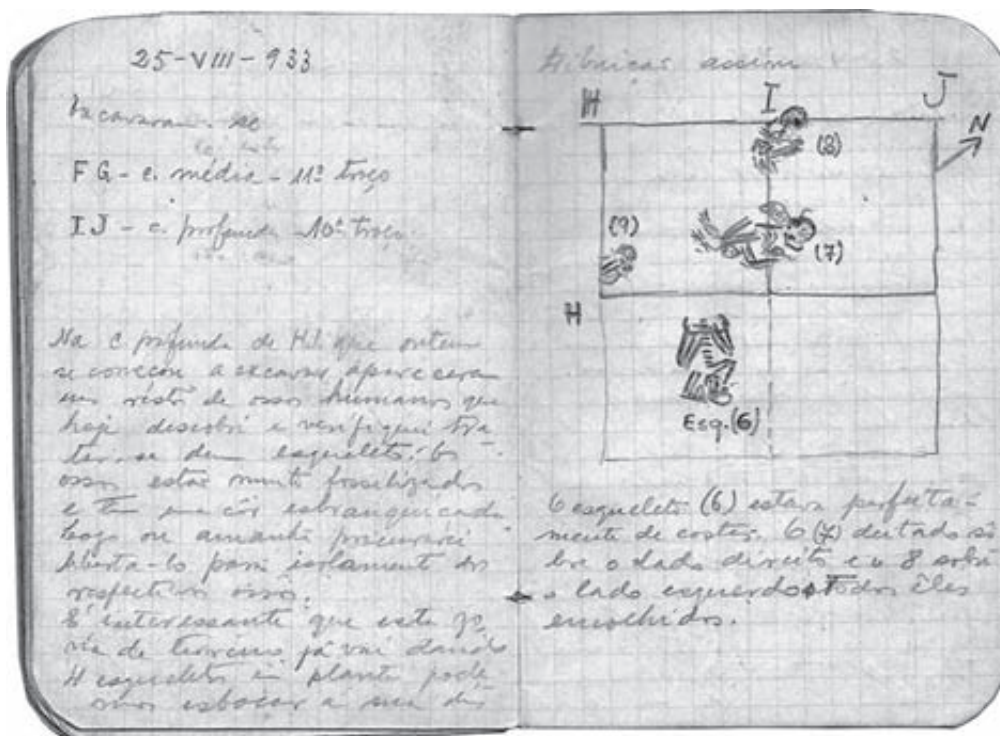 25-VIII-933
Escavaram-se
FG - c. média - 11º troço
IJ - c. profunda - 10º troço
Na c. profunda de HI que ontem
se começou a escavar apareceram
uns restos de ossos humanos que
hoje descobri e verifiquei tra-
tar-se dum esqueleto. Os
ossos estão muito fossilizados
e têm uma côr esbranquiçada
Logo ou amanhã procurarei
para isolamento dos
respectivos ossos.
É interessante que esta
de terreno já vai dando
4 esqueletos em planta pode
mos esboçar a sua dis
H I J
N
(8)
(9)
(7)
H
Esq. (6)
O esqueleto (6) estava perfeita-
mente de costas. O (7) deitado sô
bre o lado direito e o 8 sobre
o lado esquerdo. Todos êles
encolhidos.